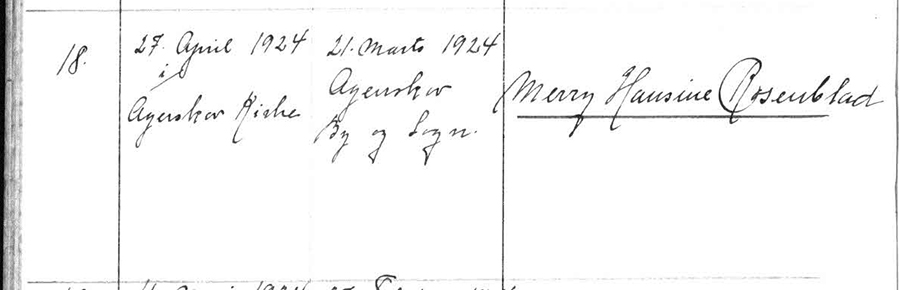 18.
27. April 1924
i
Agerskov Kirke
21. Marts 1924
Agerskov
By og Sogn.
Merry Hansine Rosenblad